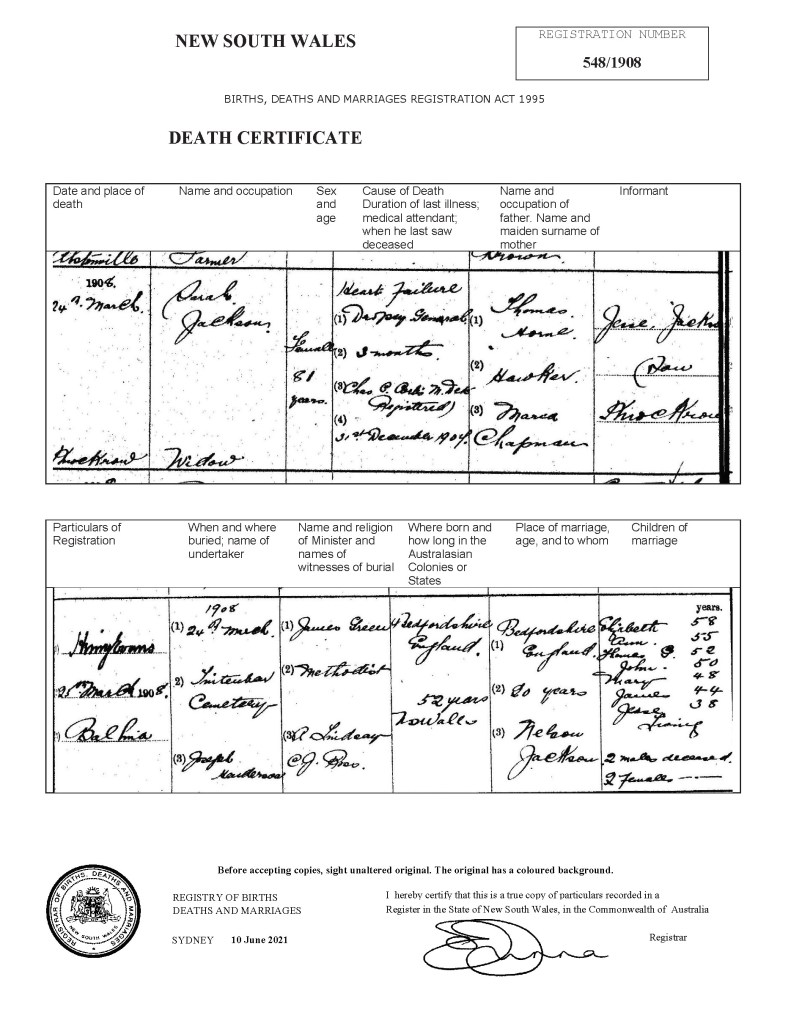 NEW SOUTH WALES
REGISTRATION NUMBER
548/1908
BIRTHS, DEATHS AND MARRIAGES REGISTRATION ACT 1995
DEATH CERTIFICATE
Date and place of death
Name and occupation
Sex and age
Cause of Death
Duration of last illness;
medical attendant;
when he last saw
deceased
Name and
occupation of
father. Name and
maiden surname of
mother
Informant
Farmer
Brown.
1908.
24th March.
Sarah
Jackson
Female
81
years.
Heart Failure
(1) Dropsy General
(2) 3 months.
(3)
Registered)
(4)
31st December 1907.
(1)
Thomas
Horne.
(2)
Hawker.
(3) Maria
Chapman
Jesse Jackson
Son
Widow
Particulars of
Registration
When and where
buried; name of
undertaker
Name and religion
of Minister and
names of
witnesses of burial
Where born and
how long in the
Australasian
Colonies or
States
Place of marriage,
age, and to whom
Children of
marriage
Henry Evans
25th March 1908.
Balhia
1908
(1) 24th March.
2)
Cemetery
(3) Joseph
(1) James Green
(2) Methodist
(3) A Lindsay
C.J.
Bedfordshire
England.
52 years
NSWales
Bedfordshire
(1) England.
(2) 20 years
(3) Nelson
Jackson
years.
Elizabeth 58
Ann. 55
Thomas G. 52
John. 50
Mary 48
James 44
Jesse 38
Living
2 males deceased.
2 Females
Before accepting copies, sight unaltered original. The original has a coloured background.
REGISTRAR OF BIRTHS, DEATHS AND MARRIAGES
NEW SOUTH WALES
REGISTRY OF BIRTHS
DEATHS AND MARRIAGES
SYDNEY 10 June 2021
I hereby certify that this is a true copy of particulars recorded in a
Register in the State of New South Wales, in the Commonwealth of Australia
Registrar